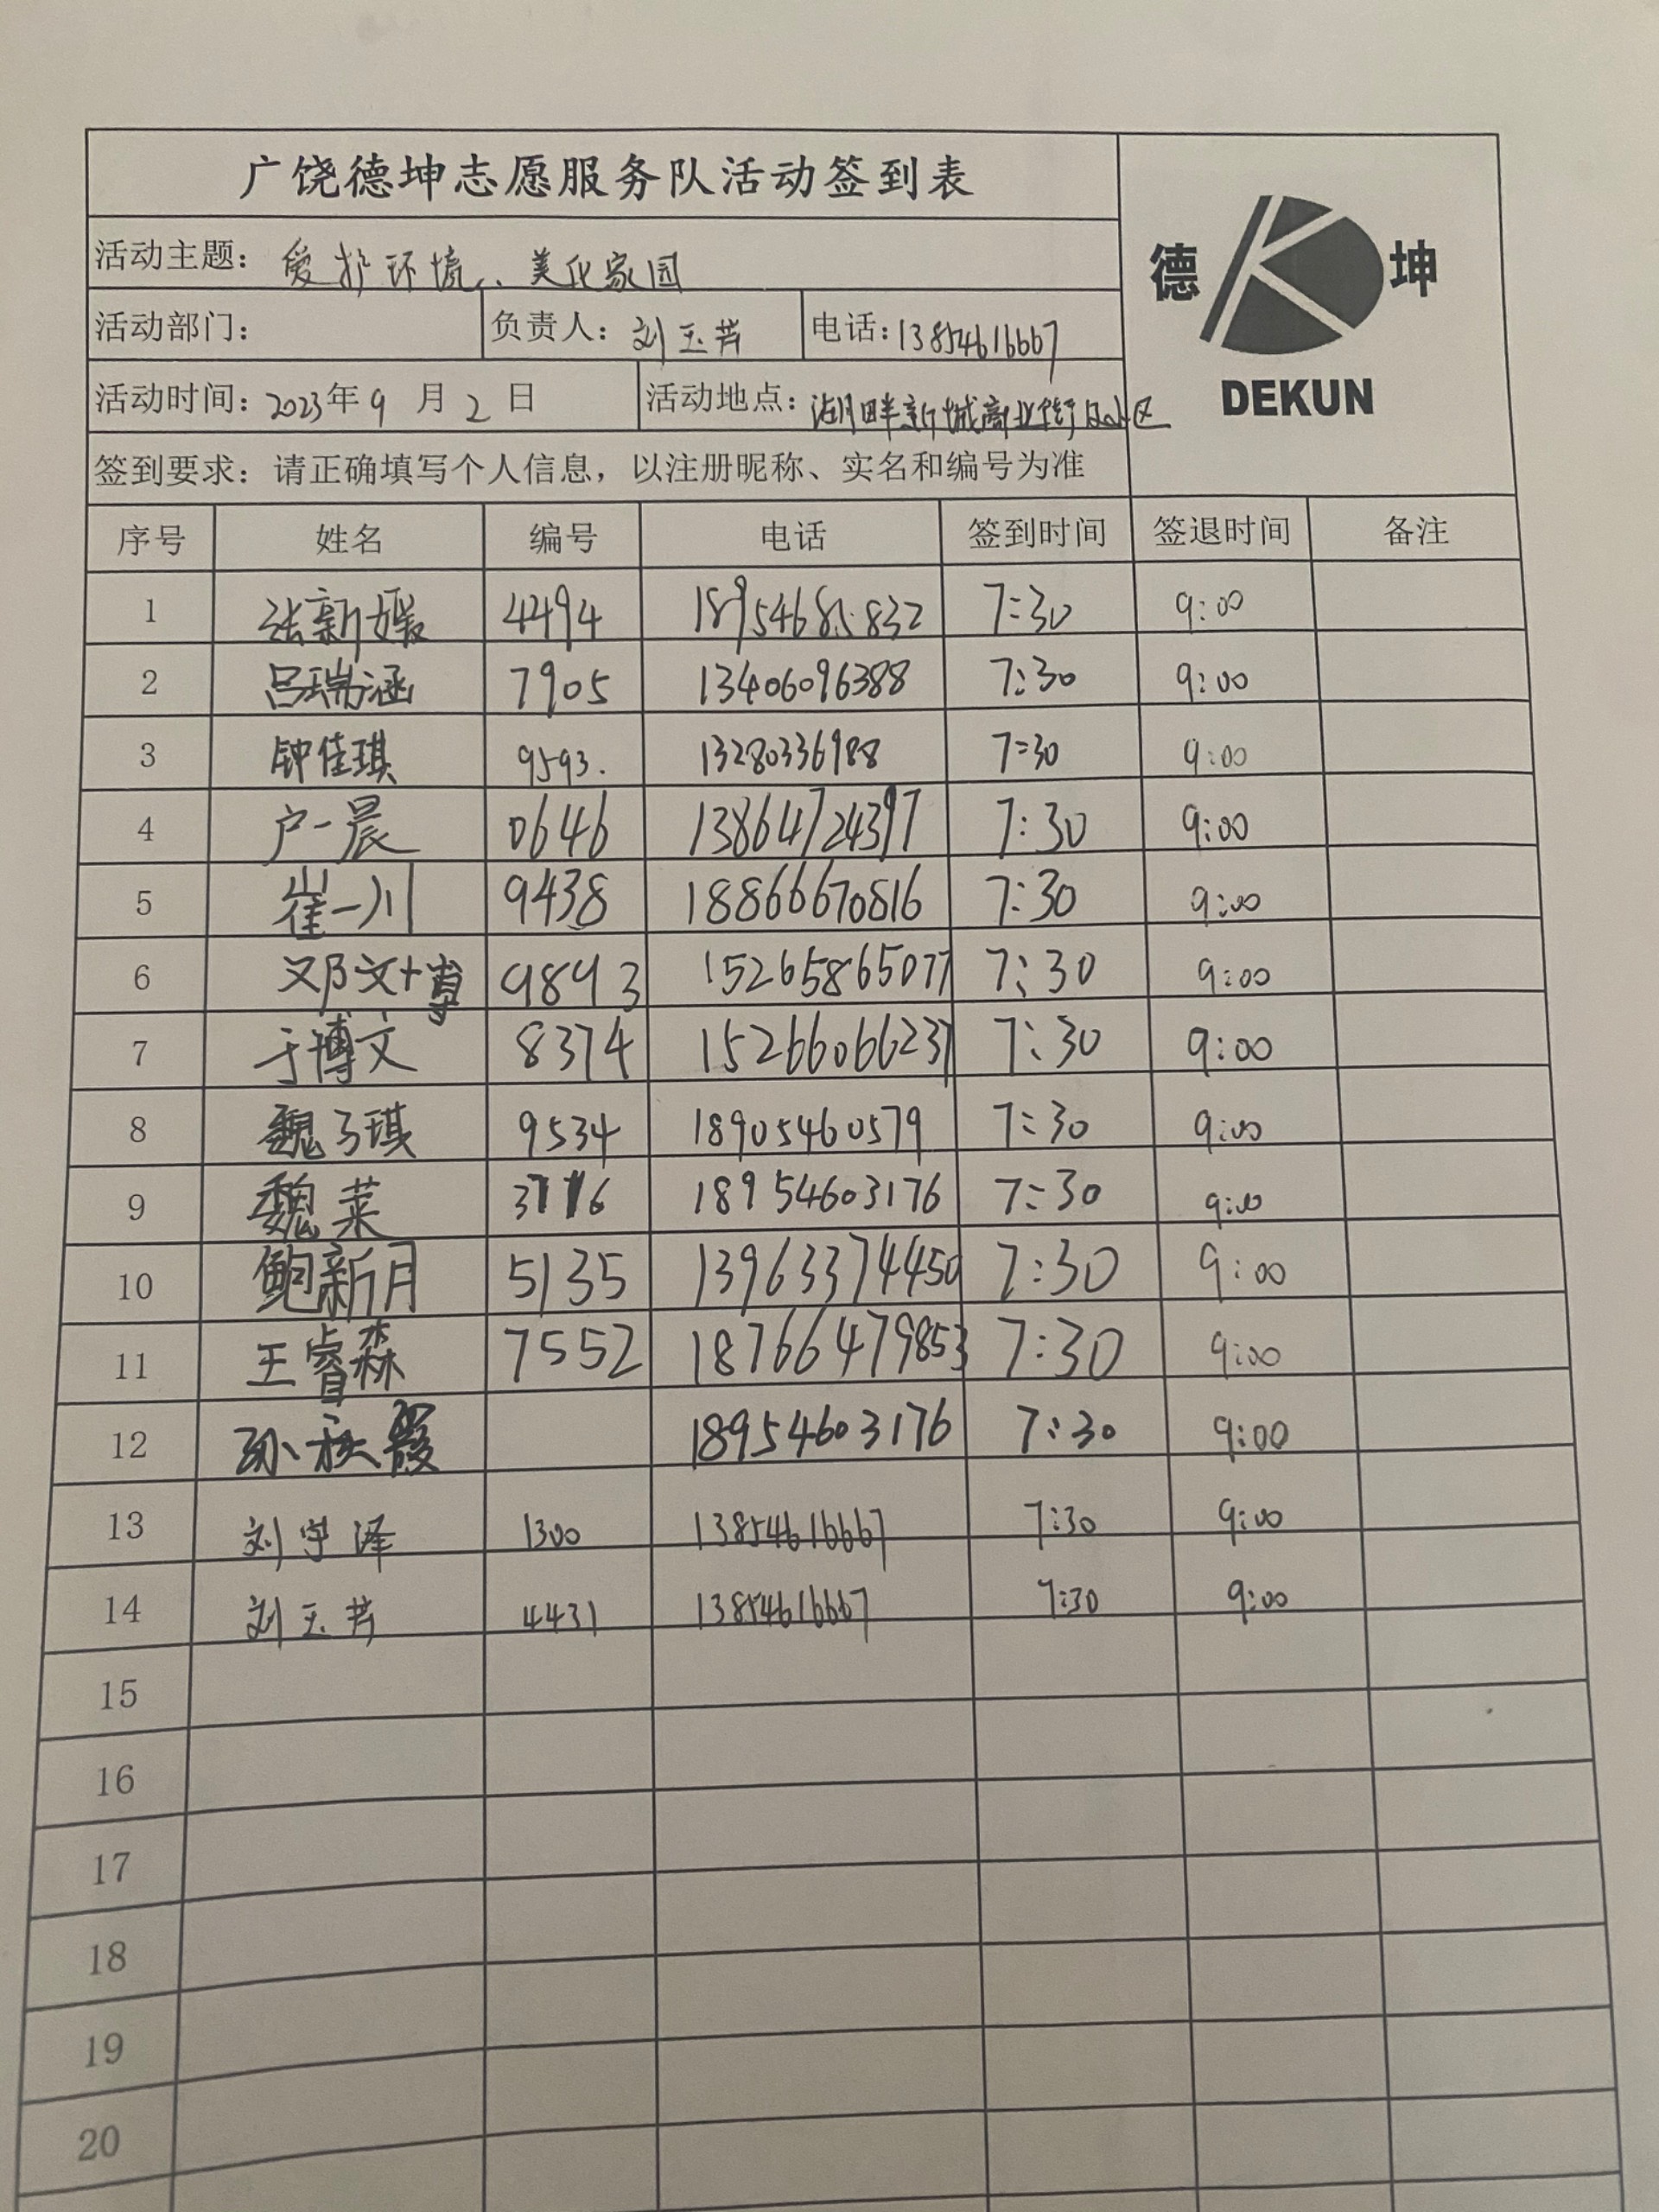 广饶德坤志愿服务队活动签到表
德 坤
DEKUN
活动主题：爱护环境、美化家园
活动部门： 负责人：刘玉芳 电话：13854616667
活动时间：2023年9月2日 活动地点：湖畔新城商业街及小区
签到要求：请正确填写个人信息，以注册昵称、实名和编号为准
序号 姓名 编号 电话 签到时间 签退时间 备注
1 张新媛 4494 18954685832 7:30 9:00
2 吕瑞涵 7905 13406096388 7:30 9:00
3 钟佳琪 9593. 13280336988 7:30 9:00
4 户一晨 0646 13864724397 7:30 9:00
5 崔一川 9438 18866670816 7:30 9:00
6 邓文博 9893 15265865077 7:30 9:00
7 于博文 8374 15266066237 7:30 9:00
8 魏子琪 9534 18905460579 7:30 9:00
9 魏莱 18954603176 7:30 9:00
10 鲍新月 5135 13963374450 7:30 9:00
11 王睿森 7552 18766479853 7:30 9:00
12 孙秋霞 18954603176 7:30 9:00
13 刘宇泽 1300 13854616667 7:30 9:00
14 刘玉芳 4431 13854616667 7:30 9:00
15
16
17
18
19
20